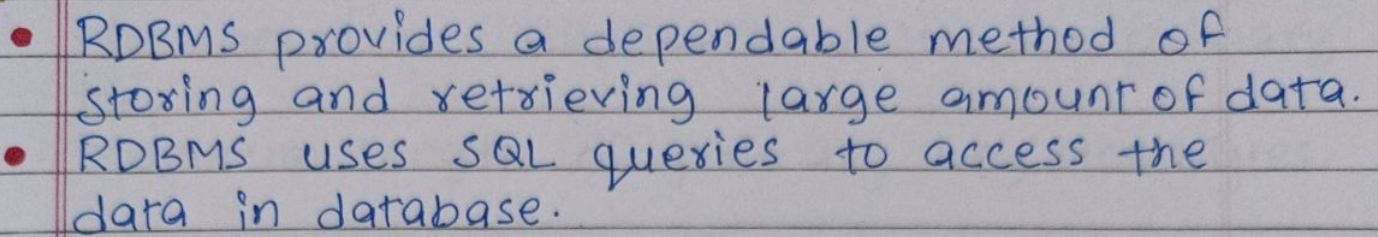 • RDBMS provides a dependable method of
storing and retrieving large amount of data.
• RDBMS uses SQL queries to access the
data in database.